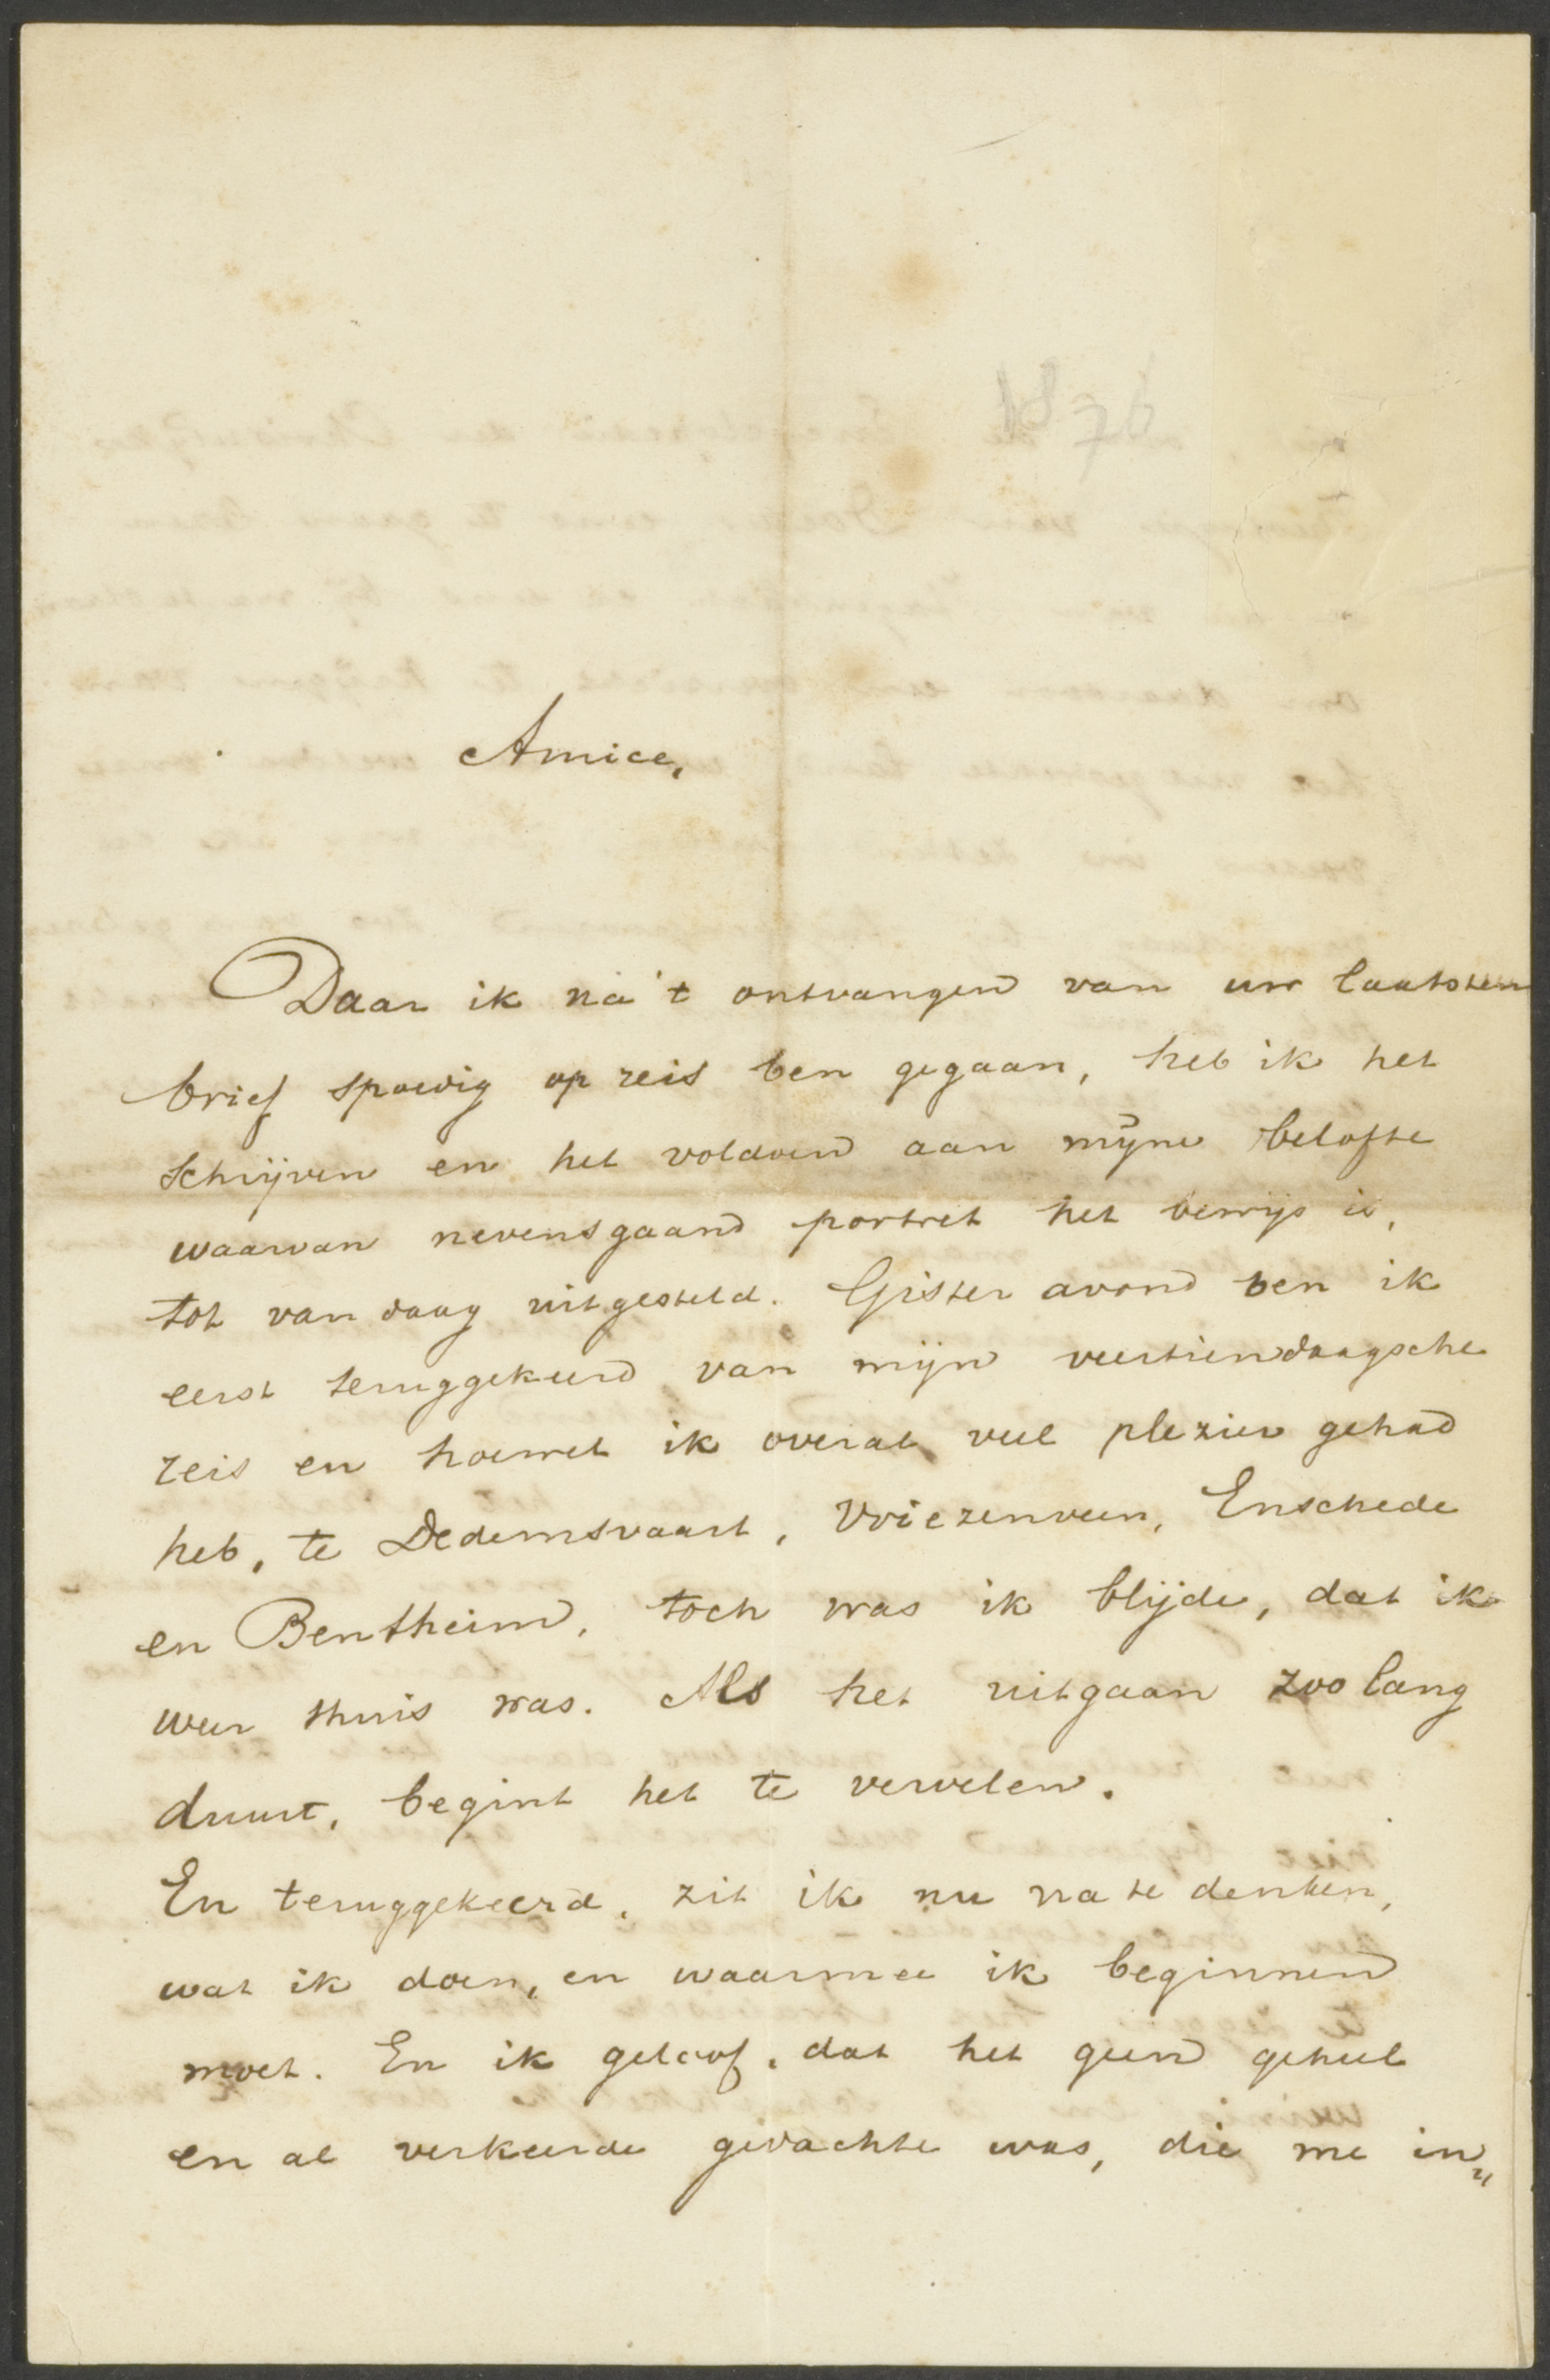 Amice,
Daar ik na 't ontvangen van uw laatsten
brief spoedig op reis ben gegaan, heb ik het
schrijven en het voldoen aan mijne belofte
waarvan nevensgaand portret het bewijs is,
tot van daag uitgesteld. Gister avond ben ik
eerst teruggekeerd van mijn veertiendaagsche
reis en hoewel ik overal veel plezier gehad
heb, te Dedemsvaart, Vriezenveen, Enschede
en Bentheim, toch was ik blijde, dat ik
weer thuis was. Als het uitgaan zoo lang
duurt, begint het te vervelen.
En teruggekeerd, zit ik nu na te denken,
wat ik doen, en waarmee ik beginnen
moet. En ik geloof, dat het geen geheel
en al verkeerde gedachte was, die me in„